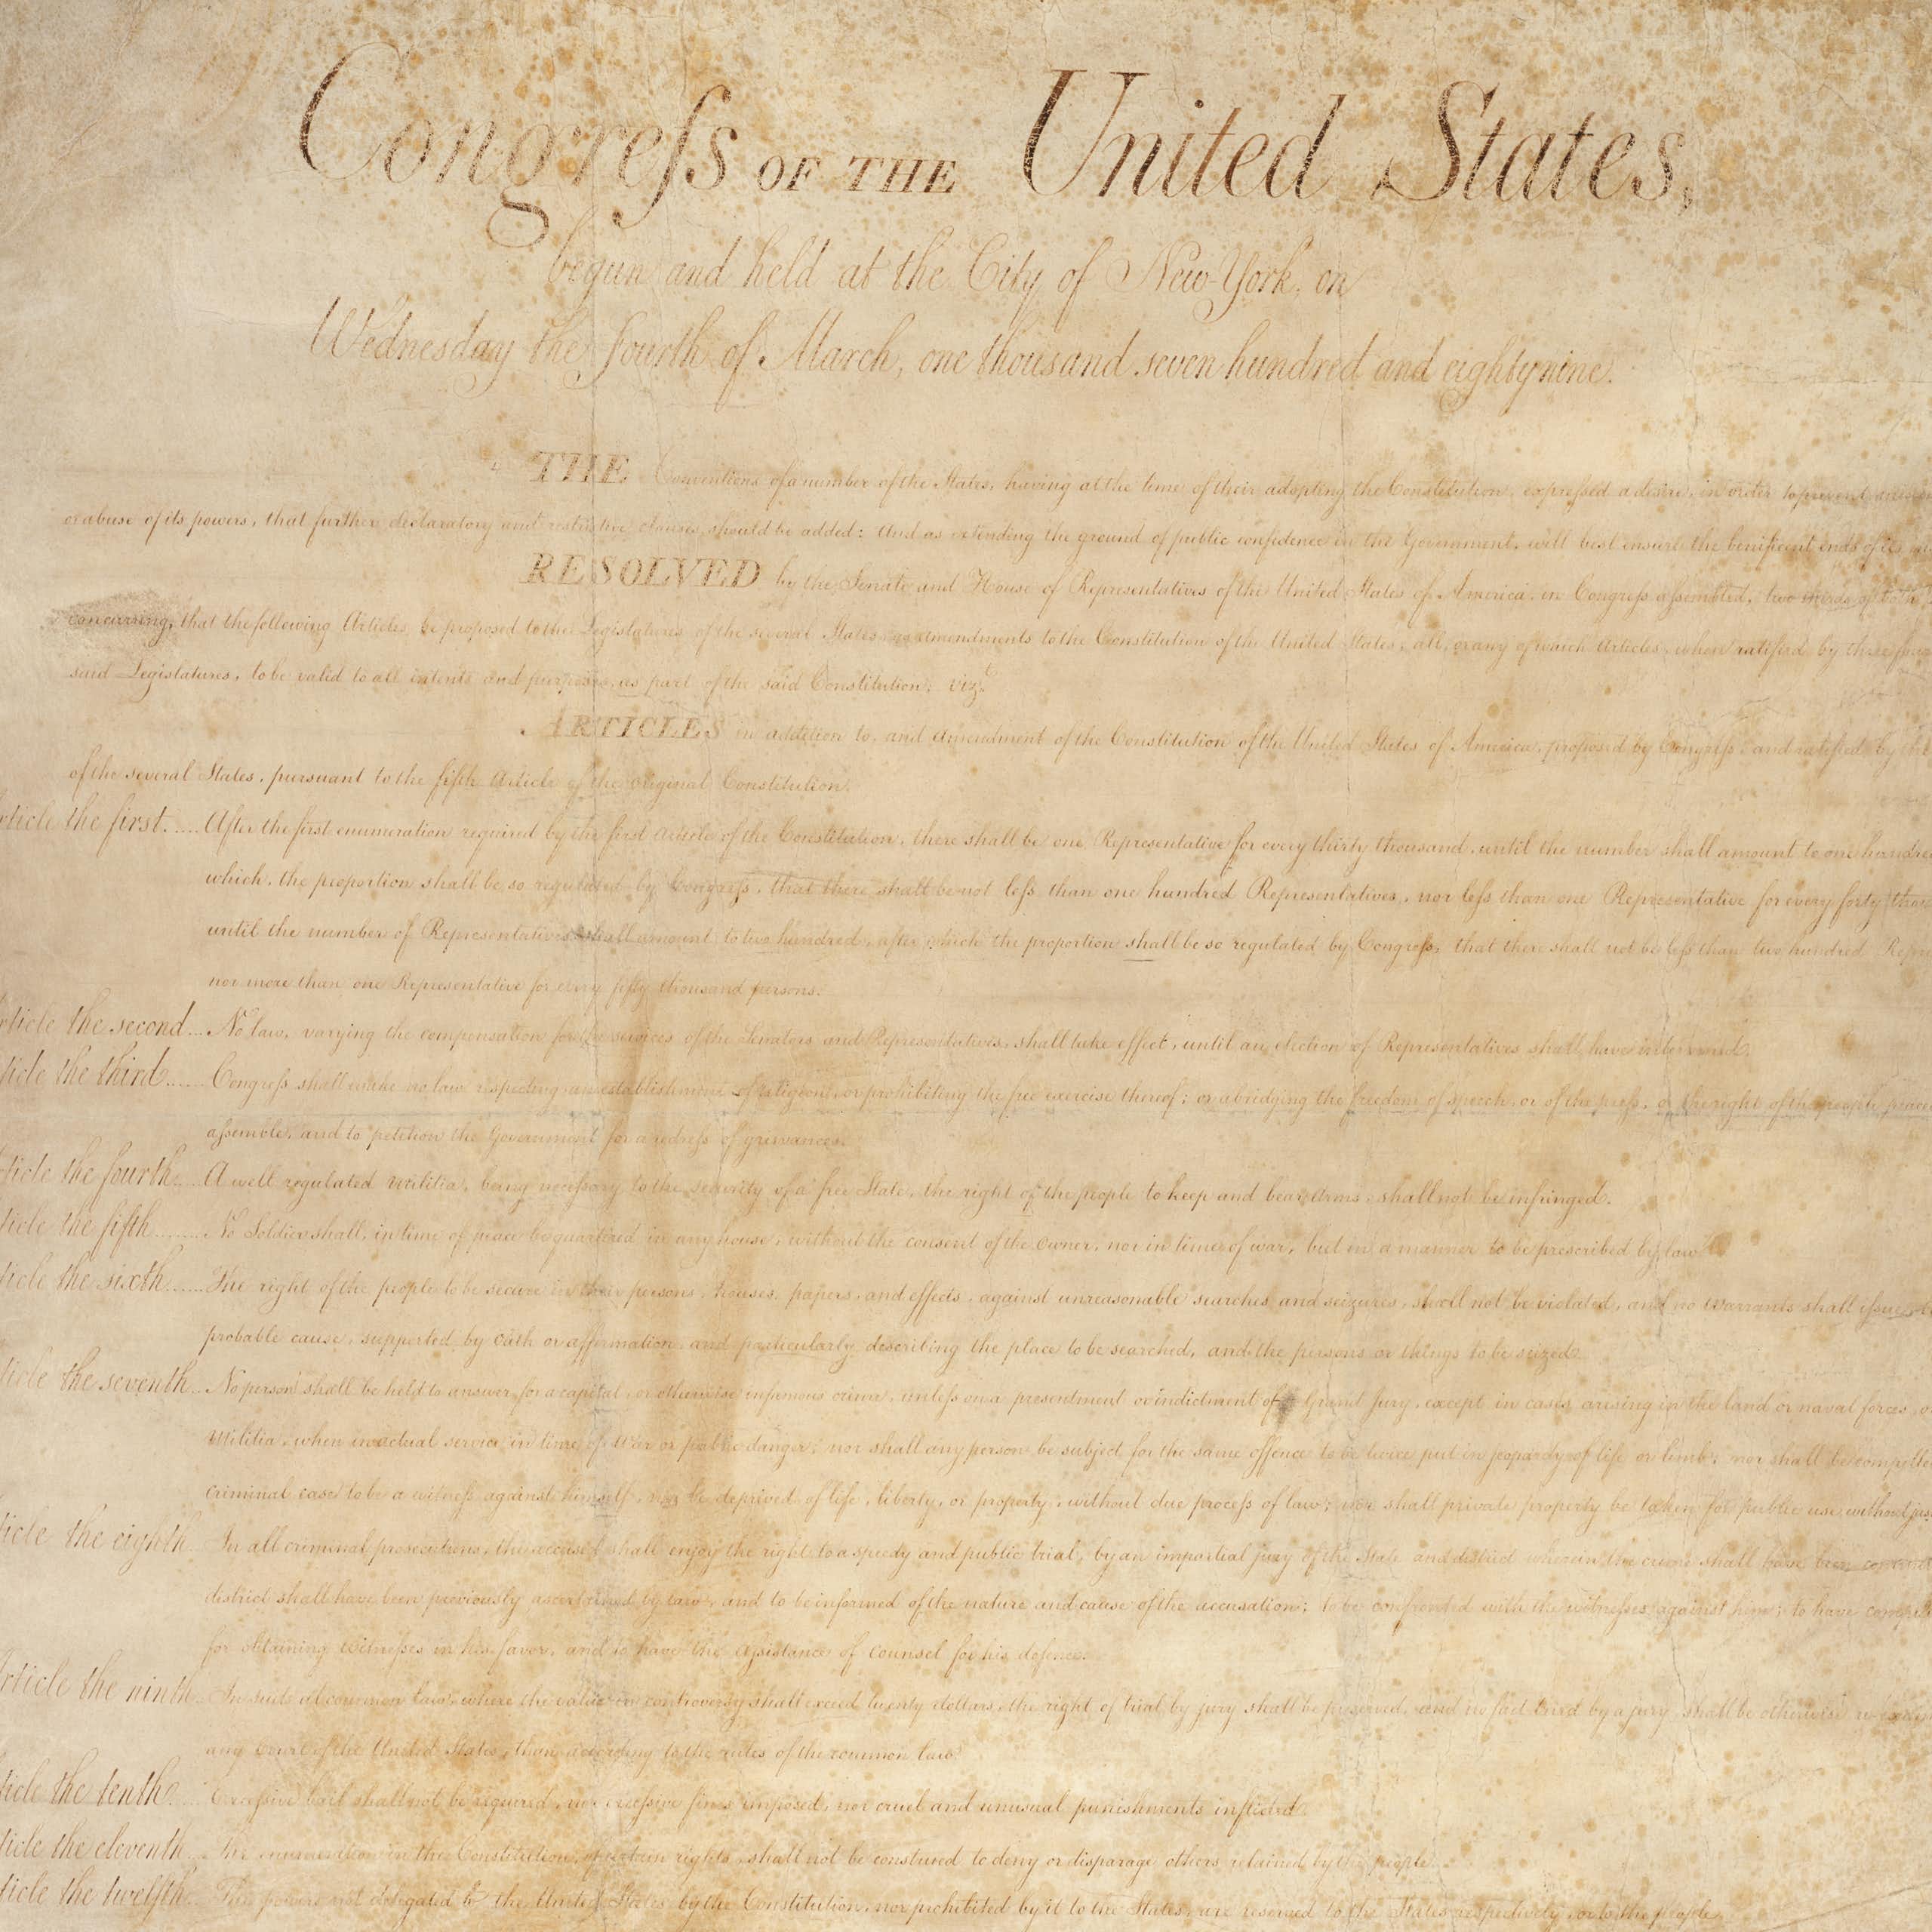 Congreſs OF THE United States,
begun and held at the City of New-York, on
Wednesday the fourth of March, one thousand seven hundred and eighty nine.
THE Conventions of a number of the States, having at the time of their adopting the Constitution, expreſsed a desire, in order to prevent
or abuse of its powers, that further declaratory and restrictive clauses should be added: And as extending the ground of public confidence in the Government, will best ensure the benificent ends of its
RESOLVED by the Senate and House of Representatives of the United States of America, in Congreſs aſsembled, two thirds of both
concurring, that the following Articles be proposed to the Legislatures of the several States, as amendments to the Constitution of the United States, all, or any of which Articles, when ratified by three
said Legislatures, to be valid to all intents and purposes, as part of the said Constitution; vizt
ARTICLES in addition to, and Amendment of the Constitution of the United States of America, proposed by Congreſs, and ratified by the
of the several States, pursuant to the fifth Article of the original Constitution.
rticle the first..... After the first enumeration required by the first Article of the Constitution, there shall be one Representative for every thirty thousand, until the number shall amount to one hundre
which, the proportion shall be so regulated by Congreſs, that there shall be not leſs than one hundred Representatives, nor leſs than one Representative for every forty thou
until the number of Representatives shall amount to two hundred, after which the proportion shall be so regulated by Congreſs, that there shall not be leſs than two hundred Repre
nor more than one Representative for every fifty thousand persons.
rticle the second... No law, varying the compensation for the services of the Senators and Representatives, shall take effect, until an election of Representatives shall have intervened.
ticle the third...... Congreſs shall make no law respecting an establishment of religion, or prohibiting the free exercise thereof; or abridging the freedom of speech, or of the preſs, or the right of the people peace
aſsemble, and to petition the Government for a redreſs of grievances.
rticle the fourth... A well regulated militia, being neceſsary to the security of a free State, the right of the people to keep and bear Arms, shall not be infringed.
ticle the fifth....... No Soldier shall, in time of peace be quartered in any house, without the consent of the Owner, nor in time of war, but in a manner to be prescribed by law.
ticle the sixth...... The right of the people to be secure in their persons, houses, papers, and effects, against unreasonable searches and seizures, shall not be violated, and no Warrants shall iſsue,
probable cause, supported by Oath or affirmation, and particularly describing the place to be searched, and the persons or things to be seized.
ticle the seventh... No person shall be held to answer for a capital, or otherwise infamous crime, unleſs on a presentment or indictment of a Grand Jury, except in cases arising in the land or naval forces, or
Militia, when in actual service in time of War or public danger; nor shall any person be subject for the same offence to be twice put in jeopardy of life or limb; nor shall be compelle
criminal case to be a witneſs against himself, nor be deprived of life, liberty, or property, without due proceſs of law; nor shall private property be taken for public use, without jus
ticle the eighth... In all criminal prosecutions, the accused shall enjoy the right to a speedy and public trial, by an impartial jury of the State and district wherein the crime shall have been
district shall have been previously ascertained by law, and to be informed of the nature and cause of the accusation; to be confronted with the witneſses against him; to have
for obtaining Witneſses in his favor, and to have the Aſsistance of Counsel for his defence.
rticle the ninth... In suits at common law, where the value in controversy shall exceed twenty dollars, the right of trial by jury shall be preserved, and no fact tried by a jury, shall be otherwise
any Court of the United States, than according to the rules of the common law.
ticle the tenth.... Exceſsive bail shall not be required, nor exceſsive fines imposed, nor cruel and unusual punishments inflicted.
ticle the eleventh... The enumeration in the Constitution, of certain rights, shall not be construed to deny or disparage others retained by the people.
ticle the twelfth... The powers not delegated to the United States by the Constitution, nor prohibited by it to the States, are reserved to the States respectively, or to the people.